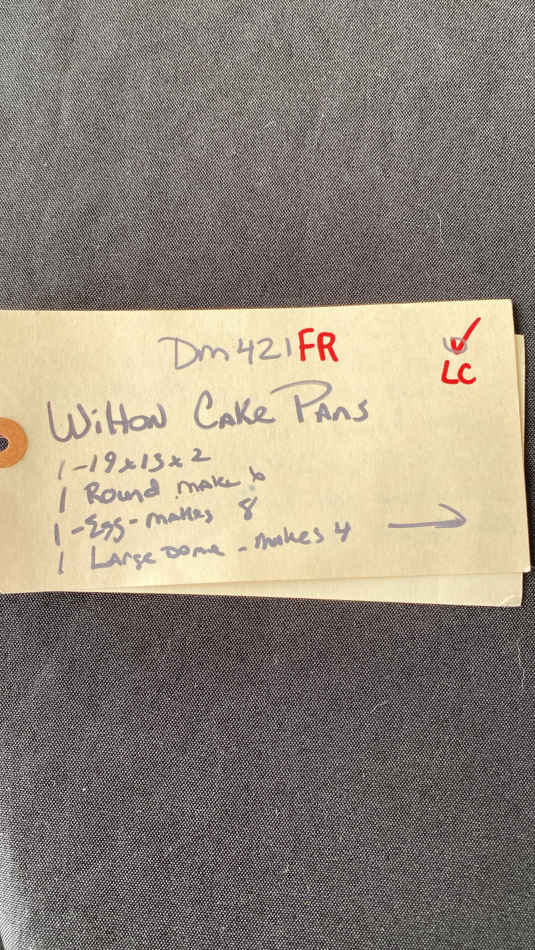 Dm421FR
LC
Wilton Cake Pans
1-19x13x2
1 Round make 6
1-Egg-makes 8
1 Large Dome - makes 4